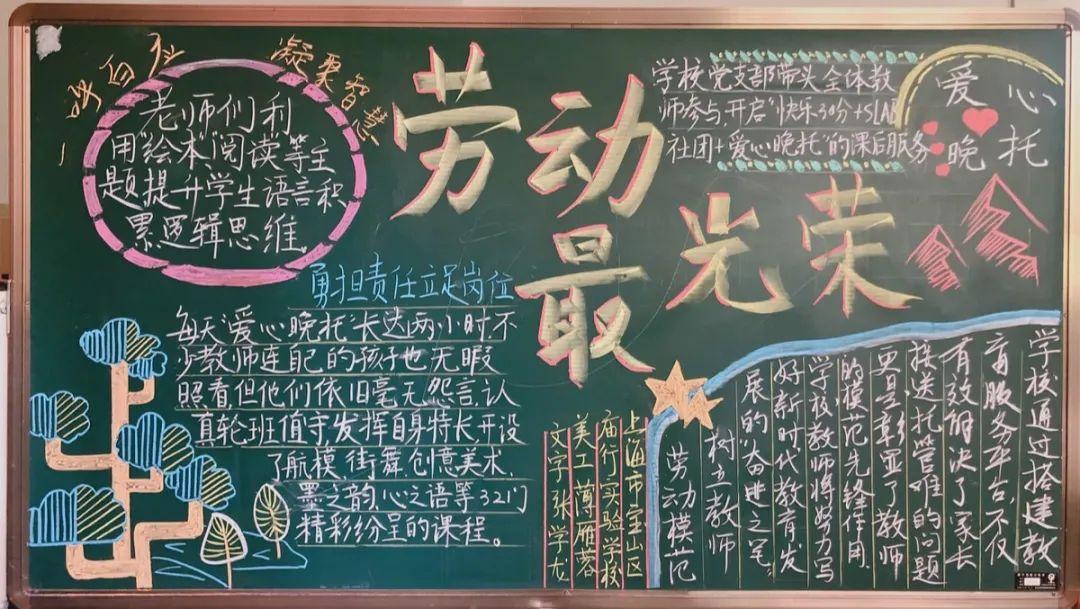 凝聚智慧
老师们利
用"绘本"阅读等主
题提升学生语言积
累逻辑思维。
劳动
最光荣
学校党支部带头全体教
师参与,开启"快乐30分+SLAB
社团+爱心晚托"的课后服务
爱心
晚托
勇担责任立足岗位
每天"爱心晚托"长达两小时,不
少教师连自己的孩子也无暇
照看但他们依旧毫无怨言,认
真轮班值守,发挥自身特长开设
了航模、街舞、创意美术、
墨之韵、心之语等32门
精彩纷呈的课程。
学校通过搭建教
育服务平台不仅
有效解决了家长
接送托管难的问题
更是彰显了教师
的模范先锋作用
学校教师将努力写
好新时代教育发
展的"奋进之笔"
树立教师
劳动模范
上海市宝山区
庙行实验学校
美工 薄雁蓉
文字张学龙